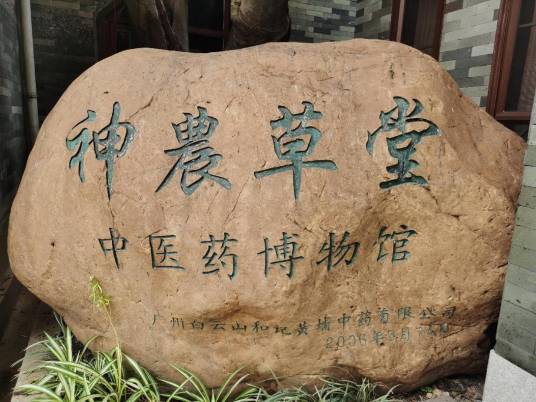 神農草堂
中医药博物馆
广州白云山和记黄埔中药有限公司
2006年3月